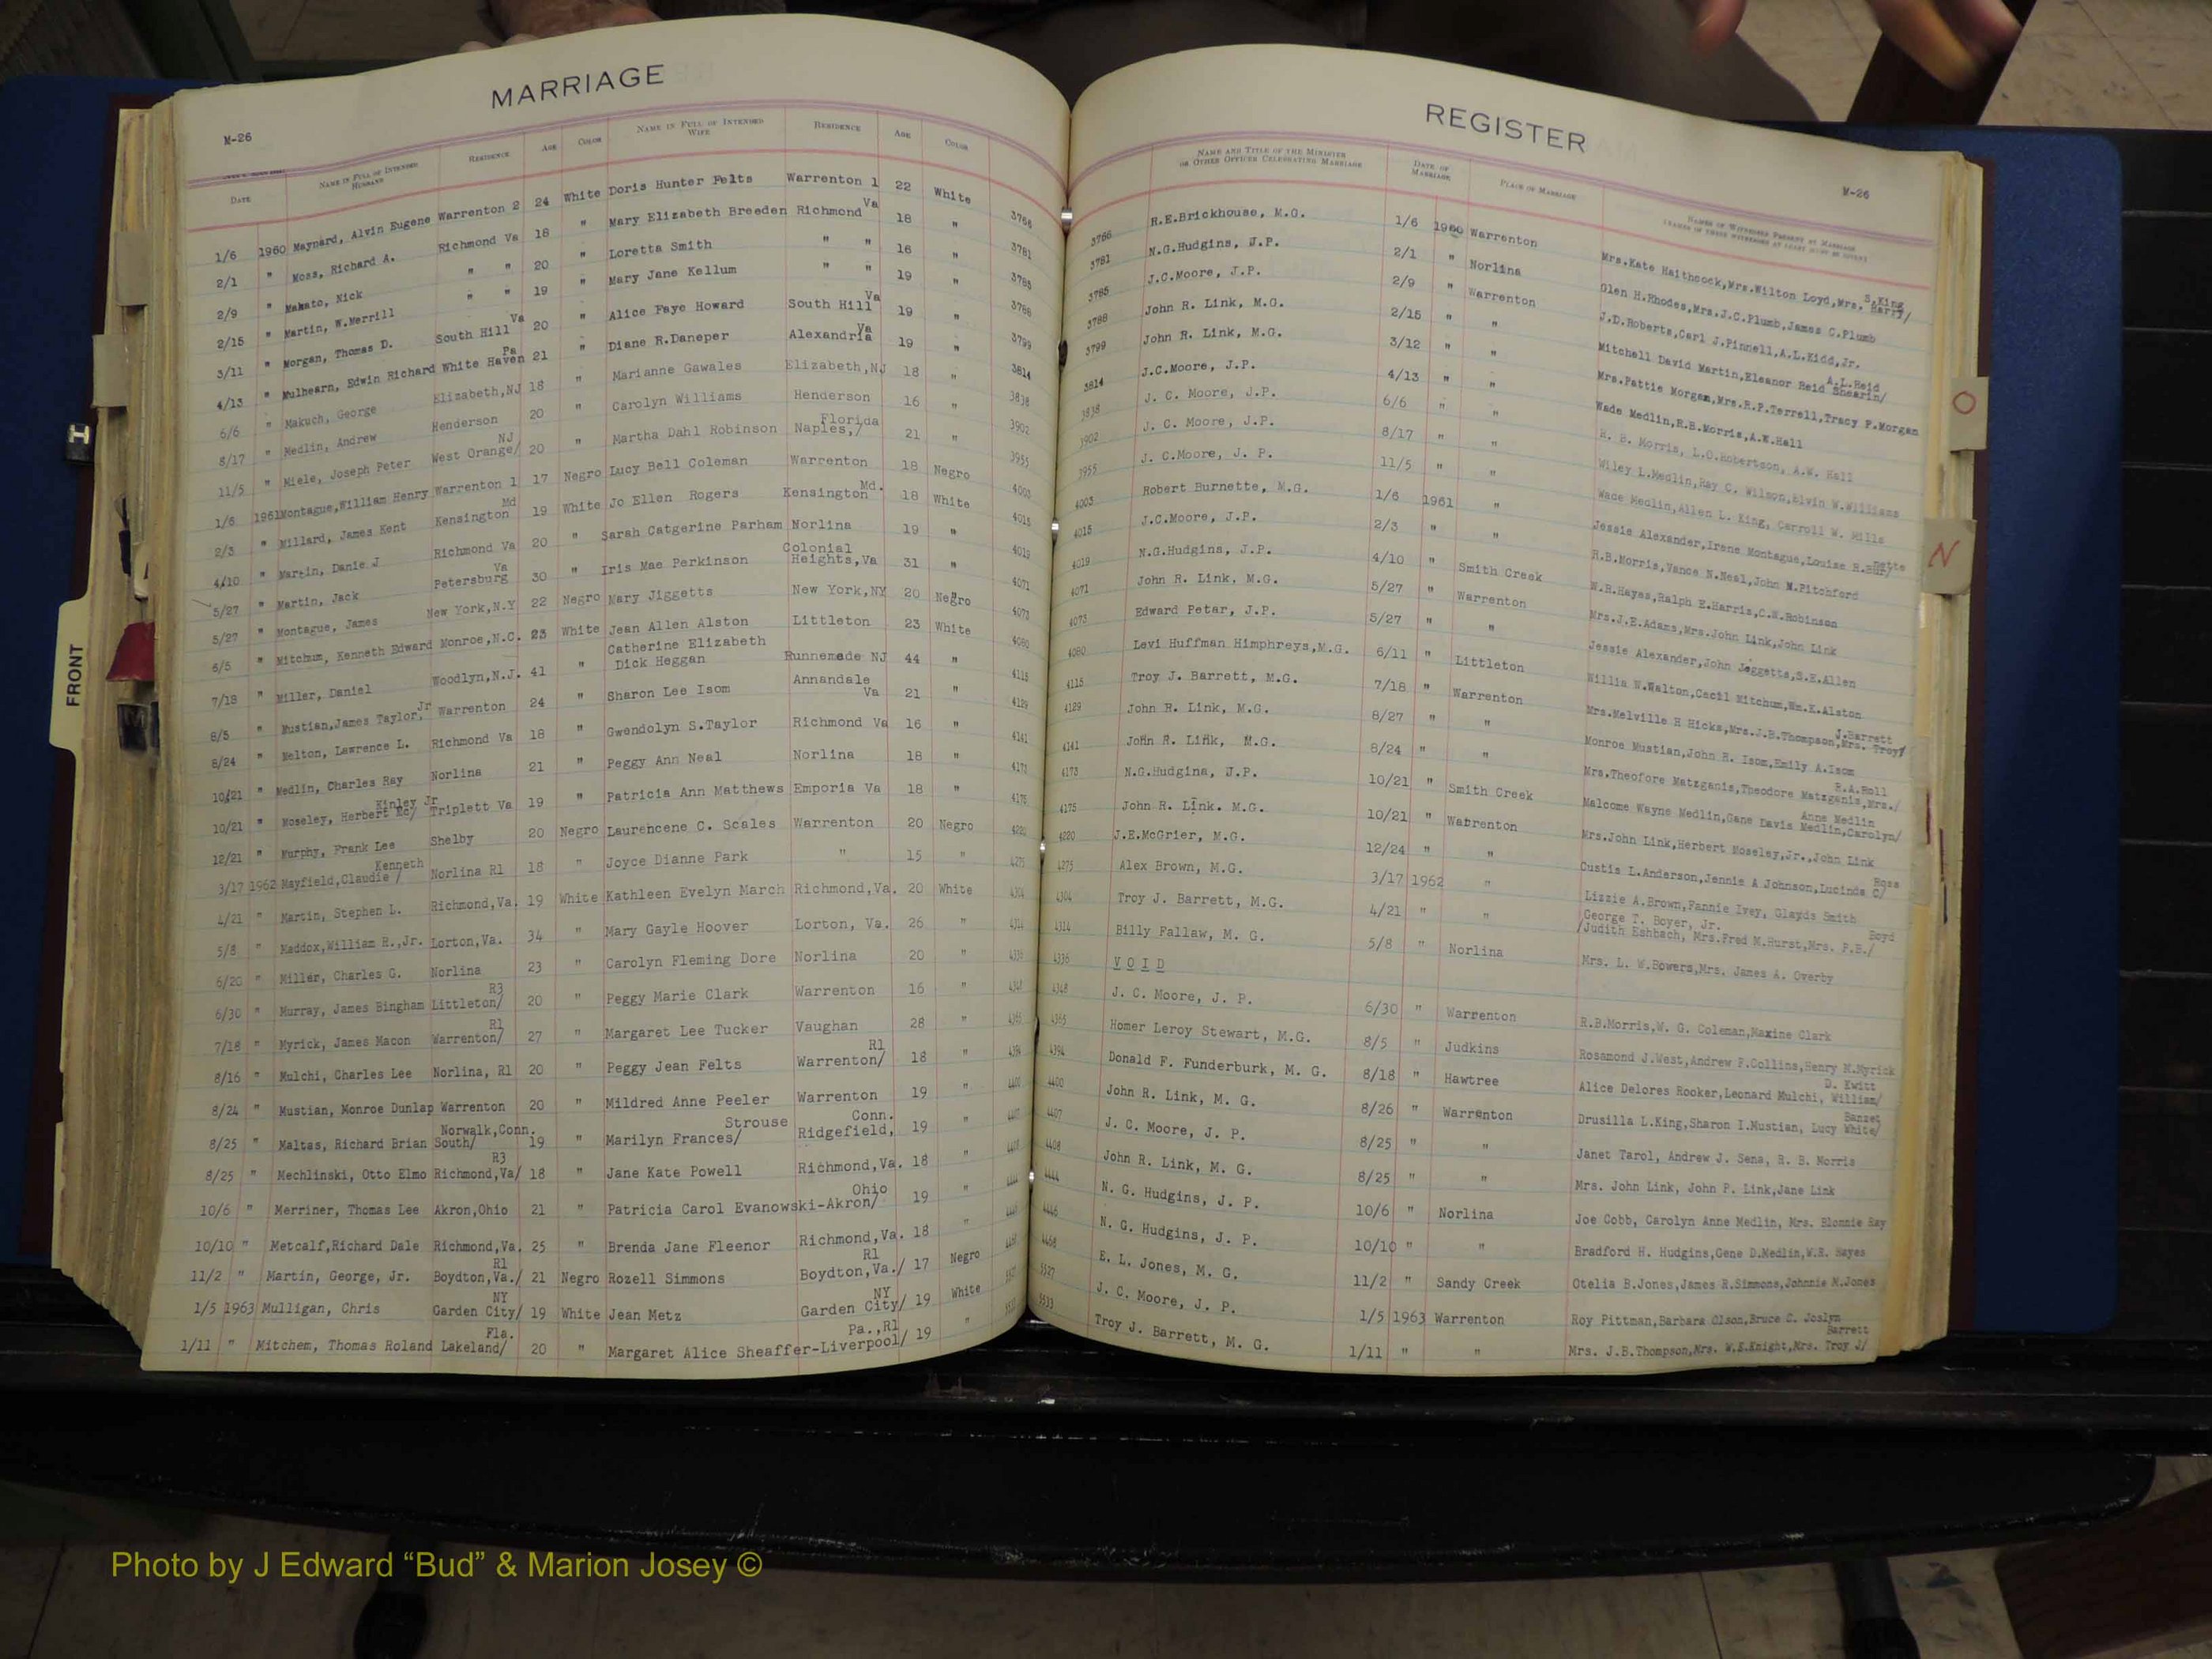 MARRIAGE
M-26
DATE NAME IN FULL OF INTENDED HUSBAND RESIDENCE AGE COLOR NAME IN FULL OF INTENDED WIFE RESIDENCE AGE COLOR
1/6 1960 Maynard, Alvin Eugene Warrenton 2 24 White Doris Hunter Felts Warrenton 1 22 White 3766
2/1 " Moss, Richard A. Richmond Va 18 " Mary Elizabeth Breeden Richmond Va 18 " 3781
2/9 " Makato, Nick " " 20 " Loretta Smith " " 16 " 3785
2/15 " Martin, W.Merrill " " 19 " Mary Jane Kellum " " 19 " 3788
3/11 " Morgan, Thomas D. South Hill Va 20 " Alice Faye Howard South Hill Va 19 " 3799
4/13 " Mulhearn, Edwin Richard White Haven Pa 21 " Diane R.Daneper Alexandria Va 19 " 3814
6/6 " Makuch, George Elizabeth,NJ 18 " Marianne Gawales Elizabeth,NJ 18 " 3838
8/17 " Medlin, Andrew Henderson 20 " Carolyn Williams Henderson 16 " 3902
11/5 " Miele, Joseph Peter West Orange/ NJ 20 " Martha Dahl Robinson Naples,/ Florida 21 " 3955
1/6 1961 Montague,William Henry Warrenton 1 17 Negro Lucy Bell Coleman Warrenton 18 Negro 4003
2/3 " Millard, James Kent Kensington Md 19 White Jo Ellen Rogers Kensington Md. 18 White 4015
4/10 " Martin, Danie J Richmond Va 20 " Sarah Catgerine Parham Norlina 19 " 4019
5/27 " Martin, Jack Petersburg Va 30 " Iris Mae Perkinson Colonial Heights,Va 31 " 4071
5/27 " Montague, James New York,N.Y 22 Negro Mary Jiggetts New York,NY 20 Negro 4073
6/5 " Mitchum, Kenneth Edward Monroe,N.C. 23 White Jean Allen Alston Littleton 23 White 4080
7/18 " Miller, Daniel Woodlyn,N.J. 41 " Catherine Elizabeth Dick Heggan Runnemede NJ 44 " 4115
8/5 " Mustian,James Taylor,Jr Warrenton 24 " Sharon Lee Isom Annandale Va 21 " 4129
8/24 " Melton, Lawrence L. Richmond Va 18 " Gwendolyn S.Taylor Richmond Va 16 " 4141
10/21 " Medlin, Charles Ray Norlina 21 " Peggy Ann Neal Norlina 18 " 4173
10/21 " Moseley, Herbert Mc/ Kinley Jr Triplett Va 19 " Patricia Ann Matthews Emporia Va 18 " 4175
12/21 " Murphy, Frank Lee Shelby 20 Negro Laurencene C. Scales Warrenton 20 Negro 4220
3/17 1962 Mayfield,Claudie / Kenneth Norlina R1 18 " Joyce Dianne Park " 15 " 4275
4/21 " Martin, Stephen L. Richmond,Va. 19 White Kathleen Evelyn March Richmond,Va. 20 White 4304
5/8 " Maddox,William R.,Jr. Lorton,Va. 34 " Mary Gayle Hoover Lorton, Va. 26 " 4314
6/20 " Miller, Charles G. Norlina 23 " Carolyn Fleming Dore Norlina 20 " 4336
6/30 " Murray, James Bingham Littleton/ R3 20 " Peggy Marie Clark Warrenton 16 " 4348
7/18 " Myrick, James Macon Warrenton/ R1 27 " Margaret Lee Tucker Vaughan 28 " 4365
8/16 " Mulchi, Charles Lee Norlina, R1 20 " Peggy Jean Felts Warrenton/ R1 18 " 4394
8/24 " Mustian, Monroe Dunlap Warrenton 20 " Mildred Anne Peeler Warrenton 19 " 4400
8/25 " Maltas, Richard Brian South/ Norwalk,Conn. 19 " Marilyn Frances/ Strouse Ridgefield, Conn. 19 " 4407
8/25 " Mechlinski, Otto Elmo Richmond,Va/ R3 18 " Jane Kate Powell Richmond,Va. 18 " 4408
10/6 " Merriner, Thomas Lee Akron,Ohio 21 " Patricia Carol Evanowski-Akron/ Ohio 19 " 4444
10/10 " Metcalf,Richard Dale Richmond,Va. 25 " Brenda Jane Fleenor Richmond,Va. 18 " 4446
11/2 " Martin, George, Jr. Boydton,Va./ R1 21 Negro Rozell Simmons Boydton,Va./ R1 17 Negro 4468
1/5 1963 Mulligan, Chris Garden City/ NY 19 White Jean Metz Garden City/ NY 19 White 5527
1/11 " Mitchem, Thomas Roland Lakeland/ Fla. 20 " Margaret Alice Sheaffer-Liverpool/ Pa.,R1 19 " 5533
REGISTER
M-26
NAME AND TITLE OF THE MINISTER OR OTHER OFFICER CELEBRATING MARRIAGE DATE OF MARRIAGE PLACE OF MARRIAGE NAMES OF WITNESSES PRESENT AT MARRIAGE
3766 R.E.Brickhouse, M.G. 1/6 1960 Warrenton Mrs.Kate Haithcock,Mrs.Wilton Loyd,Mrs. Harry/ S.King
3781 N.G.Hudgins, J.P. 2/1 " Norlina Glen H.Rhodes,Mrs.J.C.Plumb,James C.Plumb
3785 J.C.Moore, J.P. 2/9 " Warrenton J.D.Roberts,Carl J.Pinnell,A.L.Kidd,Jr.
3788 John R. Link, M.G. 2/15 " " Mitchell David Martin,Eleanor Reid Shearin/ A.L.Reid
3799 John R. Link, M.G. 3/12 " " Mrs.Pattie Morgan,Mrs.R.P.Terrell,Tracy P.Morgan
3814 J.C.Moore, J.P. 4/13 " " Wade Medlin,R.B.Morris,A.W.Hall
3838 J. C. Moore, J.P. 6/6 " " R. B. Morris, L.O.Robertson, A.W. Hall
3902 J. C. Moore, J.P. 8/17 " " Wiley L.Medlin,Ray C. Wilson,Elvin W.Williams
3955 J. C.Moore, J. P. 11/5 " " Wade Medlin,Allen L. King, Carroll W. Mills
4003 Robert Burnette, M.G. 1/6 1961 " Jessie Alexander,Irene Montague,Louise R.Bur/
4015 J.C.Moore, J.P. 2/3 " " R.B.Morris,Vance N.Neal,John M.Pitchford
4019 N.G.Hudgins, J.P. 4/10 " Smith Creek W.R.Hayes,Ralph E.Harris,C.W.Robinson
4071 John R. Link, M.G. 5/27 " Warrenton Mrs.J.E.Adams,Mrs.John Link,John Link
4073 Edward Petar, J.P. 5/27 " " Jessie Alexander,John Jeggetts,S.E.Allen
4080 Levi Huffman Himphreys,M.G. 6/11 " Littleton Willia W.Walton,Cecil Mitchum,Wm.K.Alston
4115 Troy J. Barrett, M.G. 7/18 " Warrenton Mrs.Melville H Hicks,Mrs.J.B.Thompson,Mrs. Troy/ J.Barrett
4129 John R. Link, M.G. 8/27 " " Monroe Mustian,John R. Isom,Emily A.Isom
4141 John R. Link, M.G. 8/24 " " Mrs.Theofore Matzganis,Theodore Matzganis,Mrs./ R.A.Roll
4173 N.G.Hudgins, J.P. 10/21 " Smith Creek Malcome Wayne Medlin,Gane Davis Medlin,Carolyn/ Anne Medlin
4175 John R. Link. M.G. 10/21 " Warrenton Mrs.John Link,Herbert Moseley,Jr.,John Link
4220 J.E.McGrier, M.G. 12/24 " " Custis L.Anderson,Jennie A Johnson,Lucinda C/ Ross
4275 Alex Brown, M.G. 3/17 1962 " Lizzie A.Brown,Fannie Ivey, Glayds Smith
4304 Troy J. Barrett, M.G. 4/21 " " George T. Boyer, Jr. /Judith Eshbach, Mrs.Fred M.Hurst,Mrs. P.B./ Boyd
4314 Billy Fallaw, M. G. 5/8 " Norlina Mrs. L. W.Bowers,Mrs. James A. Overby
4336 V O I D
4348 J. C. Moore, J. P. 6/30 " Warrenton R.B.Morris,W. G. Coleman,Maxine Clark
4365 Homer Leroy Stewart, M.G. 8/5 " Judkins Rosamond J.West,Andrew P.Collins,Henry M.Myrick
4394 Donald F. Funderburk, M. G. 8/18 " Hawtree Alice Delores Rooker,Leonard Mulchi, William/ D. Kwitt
4400 John R. Link, M. G. 8/26 " Warrenton Drusilla L.King,Sharon I.Mustian, Lucy White/ Banzet
4407 J. C. Moore, J. P. 8/25 " " Janet Tarol, Andrew J. Sena, R. B. Morris
4408 John R. Link, M. G. 8/25 " " Mrs. John Link, John P. Link,Jane Link
4444 N. G. Hudgins, J. P. 10/6 " Norlina Joe Cobb, Carolyn Anne Medlin, Mrs. Blonnie Ray
4446 N. G. Hudgins, J. P. 10/10 " " Bradford H. Hudgins,Gene D.Medlin,W.R. Hayes
4468 E. L. Jones, M. G. 11/2 " Sandy Creek Otelia B.Jones,James R.Simmons,Johnnie M.Jones
5527 J. C. Moore, J. P. 1/5 1963 Warrenton Roy Pittman,Barbara Olson,Bruce C. Joslyn
5533 Troy J. Barrett, M. G. 1/11 " " Mrs. J.B.Thompson,Mrs. W.K.Knight,Mrs. Troy J/ Barrett
O
N
H
FRONT
Photo by J Edward “Bud” & Marion Josey ©